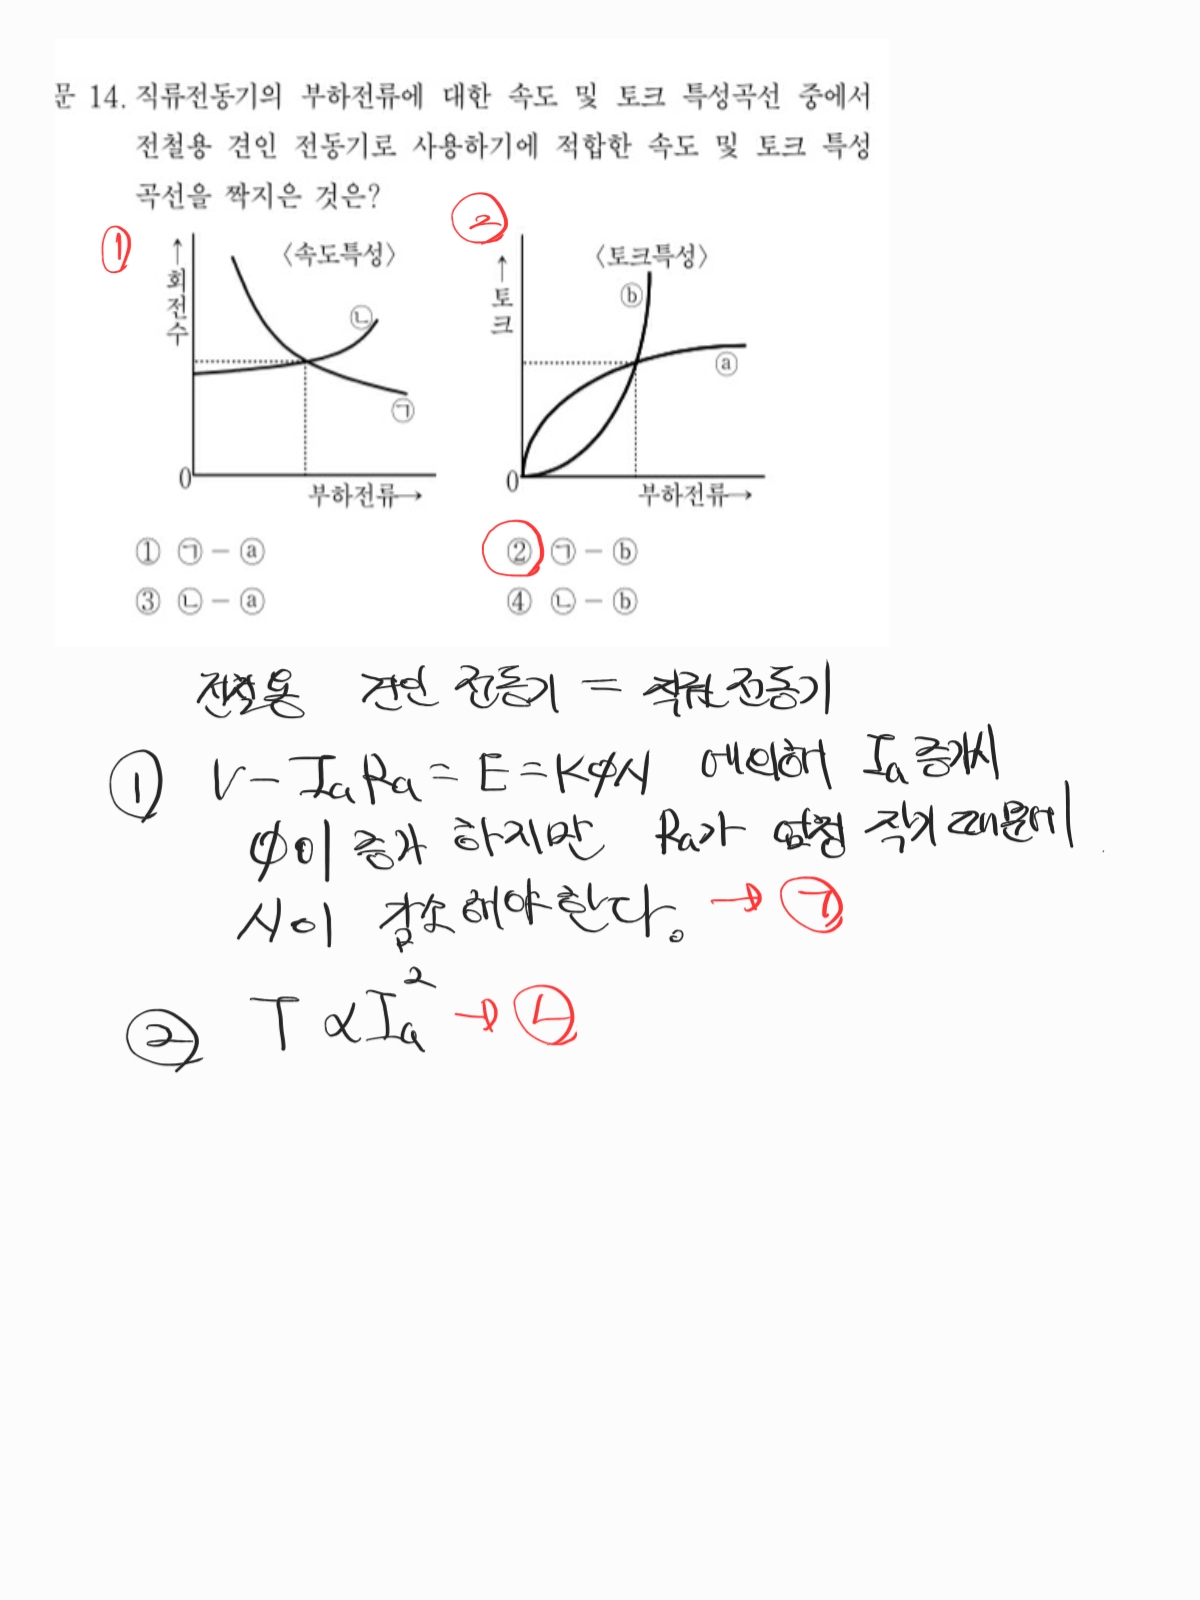 문 14. 직류전동기의 부하전류에 대한 속도 및 토크 특성곡선 중에서
전철용 견인 전동기로 사용하기에 적합한 속도 및 토크 특성
곡선을 짝지은 것은?
① ②
↑회전수 〈속도특성〉 ㉡ ㉠ 0 부하전류→
↑토크 〈토크특성〉 ⓑ ⓐ 0 부하전류→
① ㉠ - ⓐ ② ㉠ - ⓑ
③ ㉡ - ⓐ ④ ㉡ - ⓑ
전철용 견인 전동기 = 직권 전동기
① V - IaRa = E = KφN 에의해 Ia 증가시
φ이 증가 하지만 Ra가 엄청 작기 때문에
N이 감소해야한다. → ㉠
② T ∝ Ia² → ㉡